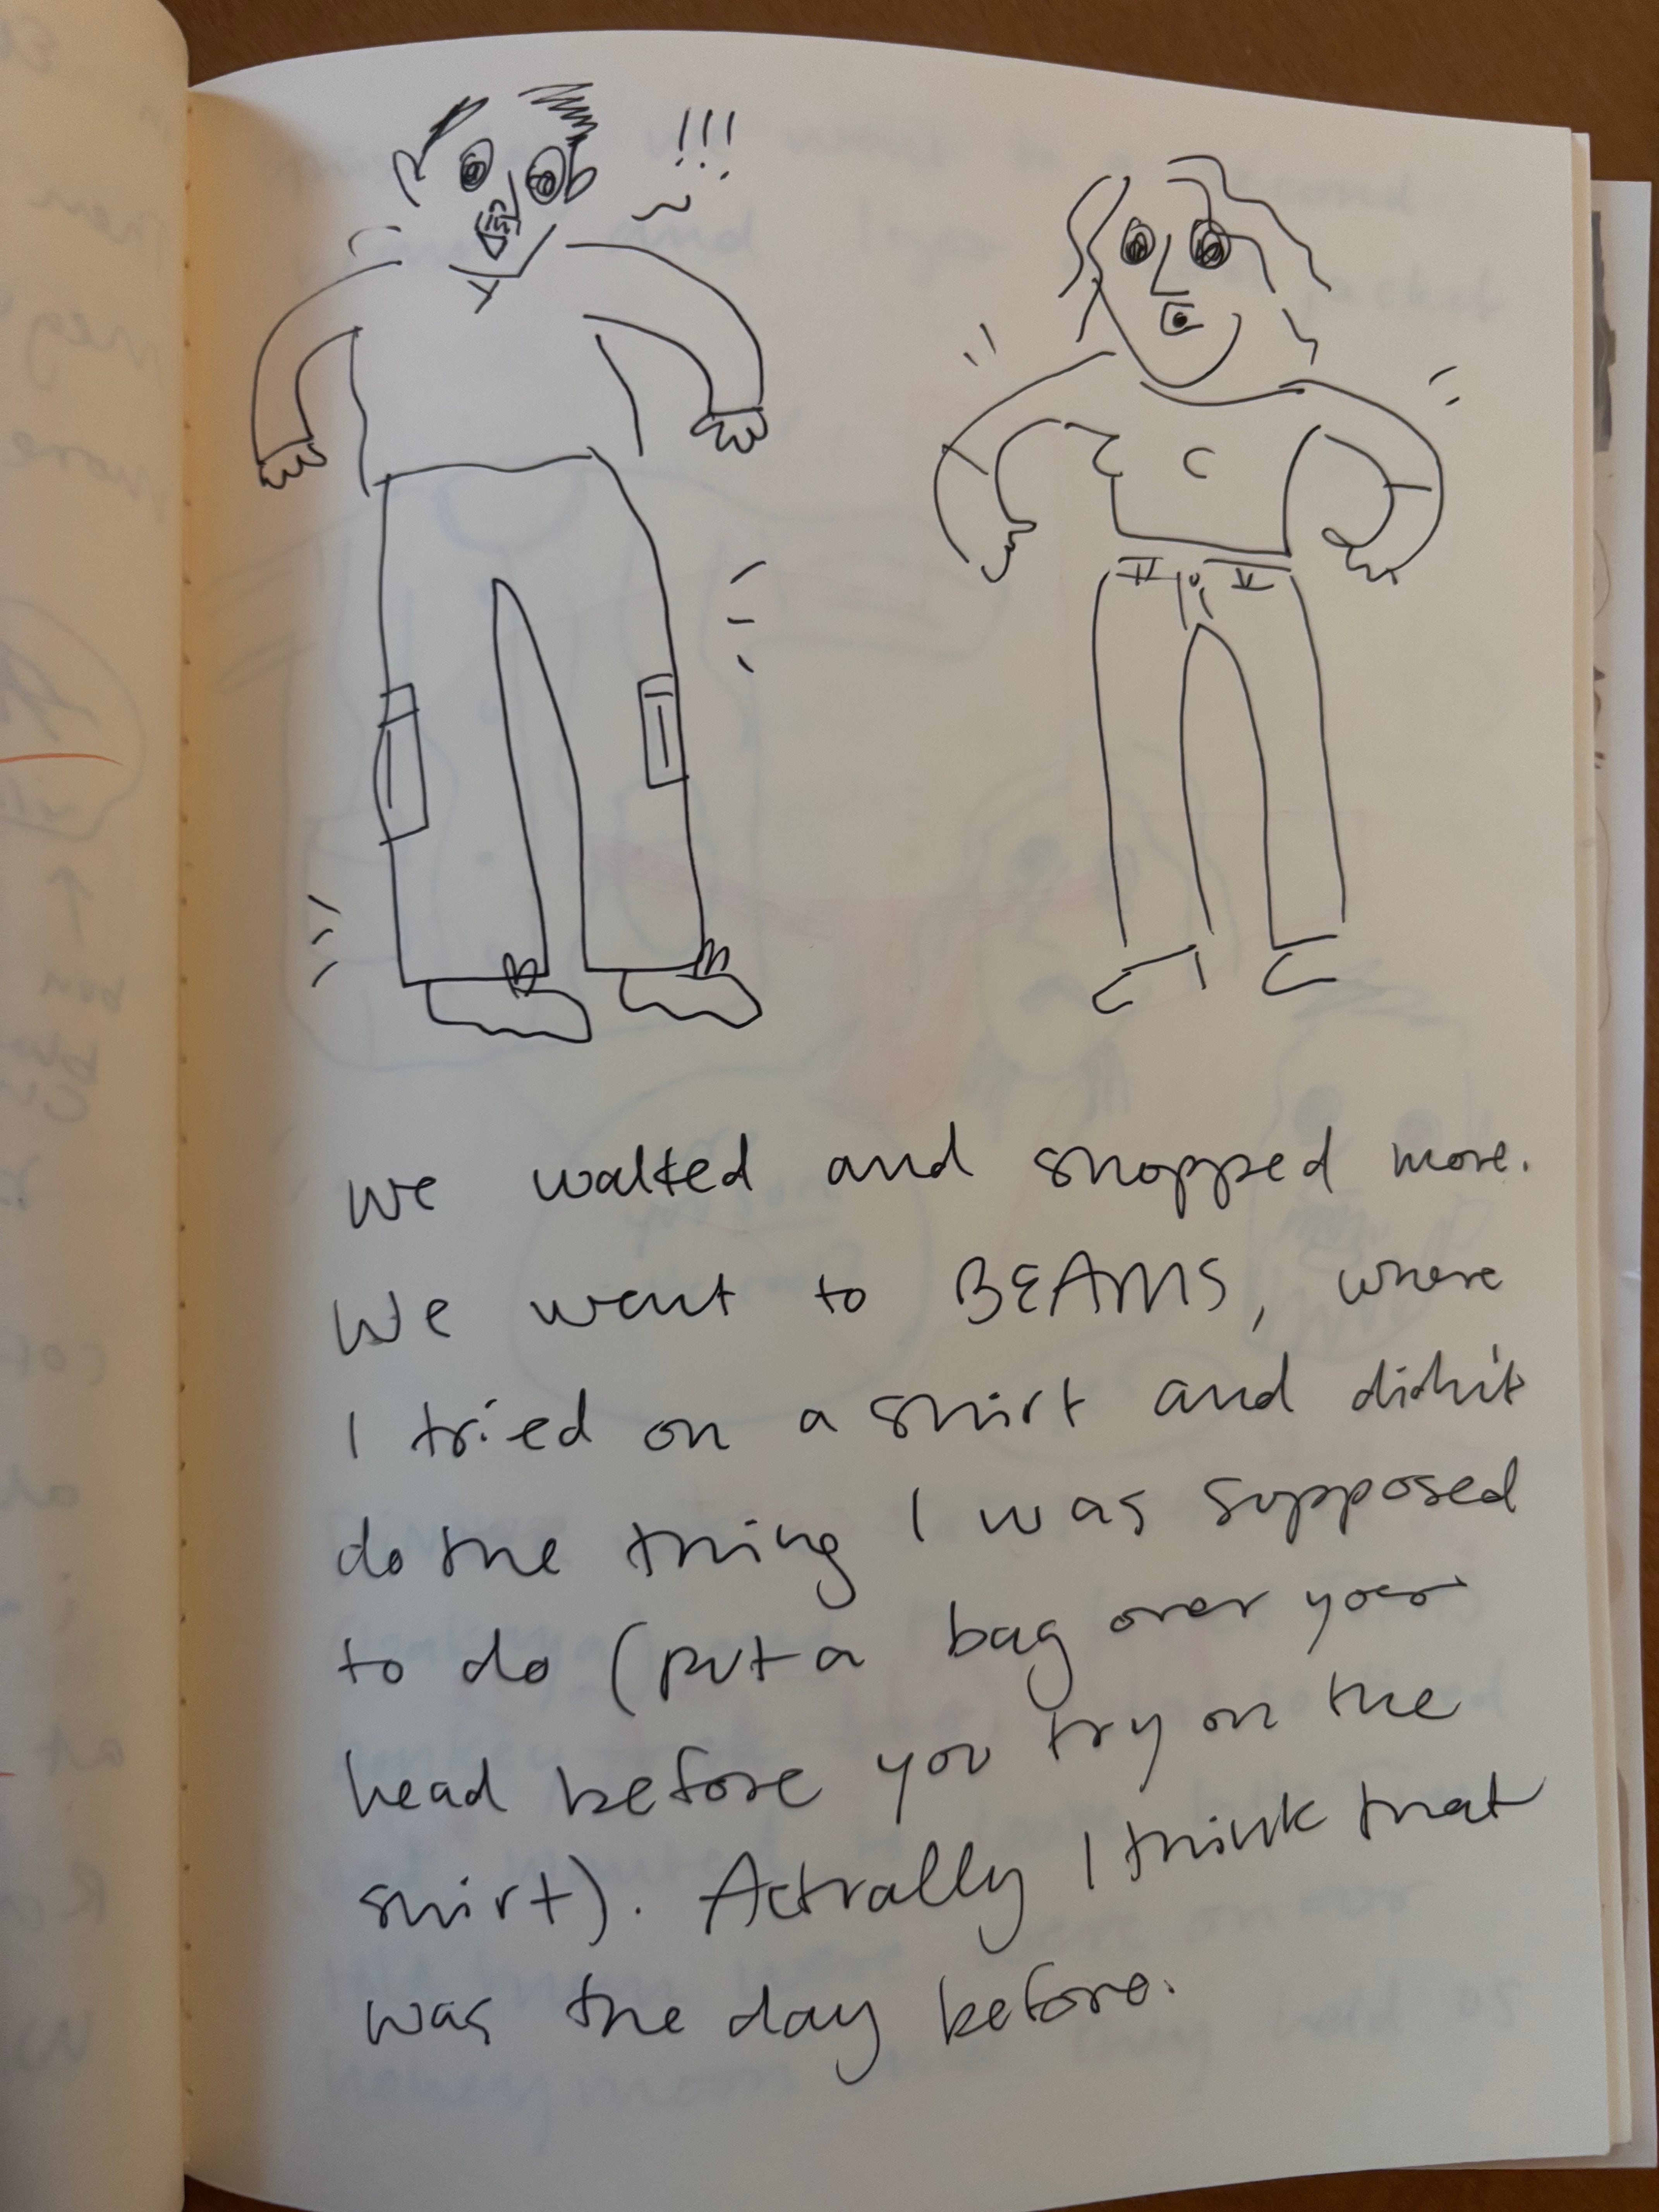 !!!
We walked and shopped more.
We went to BEAMS, where
I tried on a shirt and didn't
do the thing I was supposed
to do (put a bag over your
head before you try on the
shirt). Actually I think that
was the day before.